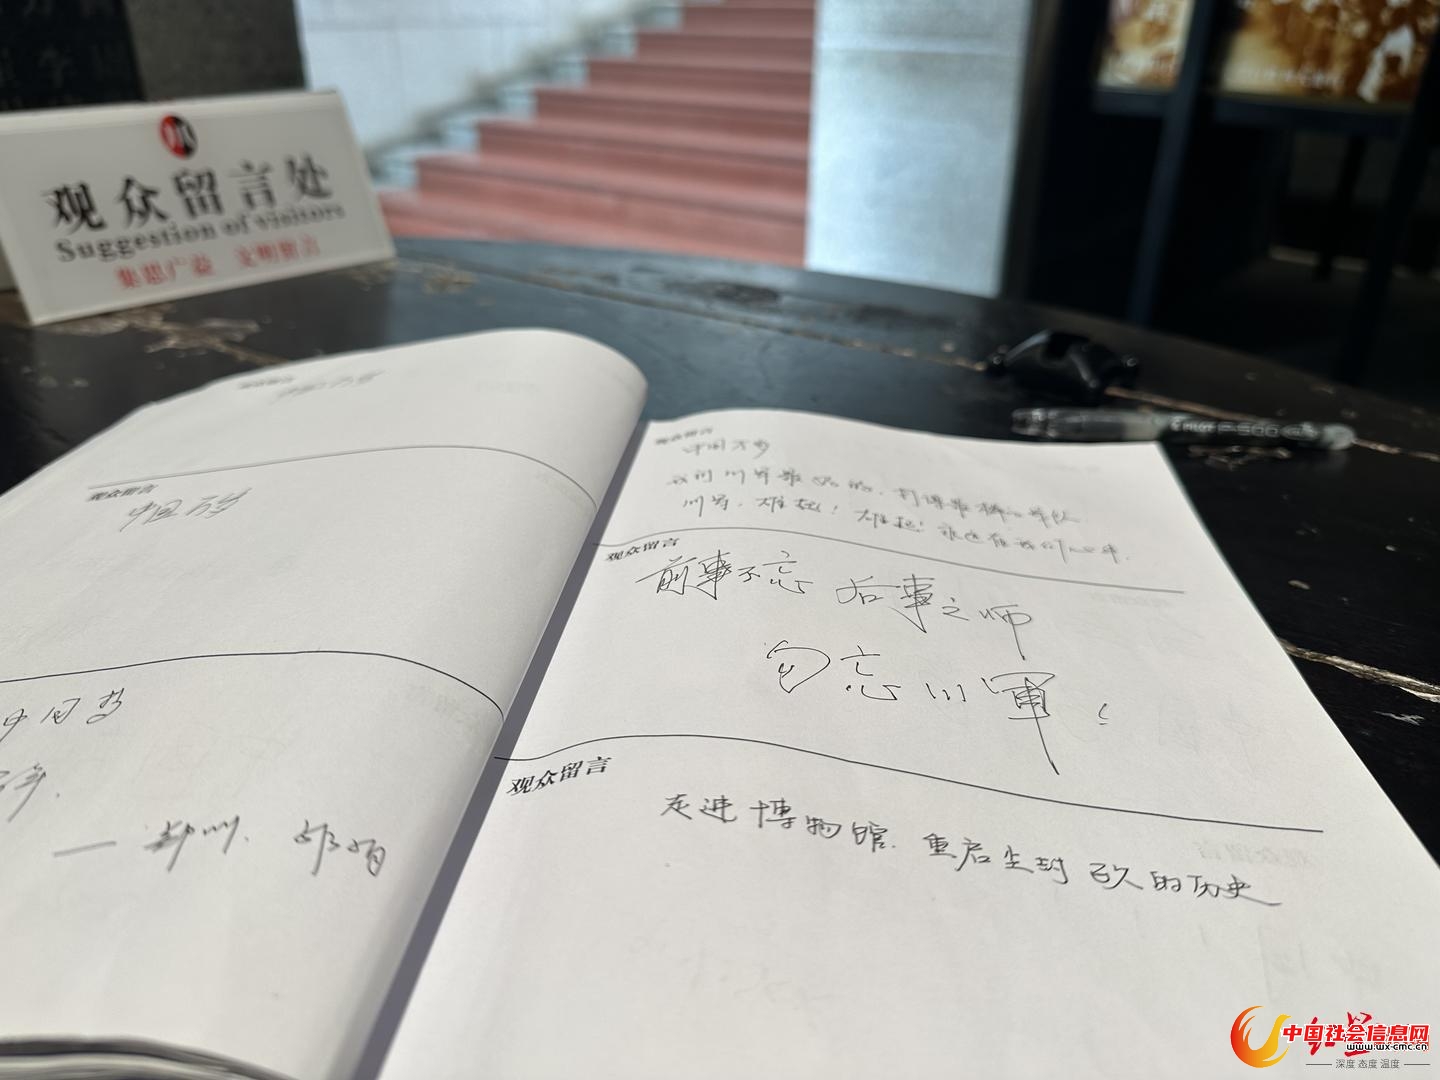 观众留言处
Suggestion of visitors
集思广益 文明留言
观众留言
中国万岁
中国梦
郑州.
观众留言
中国万岁
川军, 雄起! 雄起! 永远在我们心中.
观众留言
前事不忘 后事之师
勿忘川軍!
观众留言
走进博物馆. 重启尘封已久的历史
G-500
中国社会信息网
www.wx-cmc.cn
深度 态度 温度